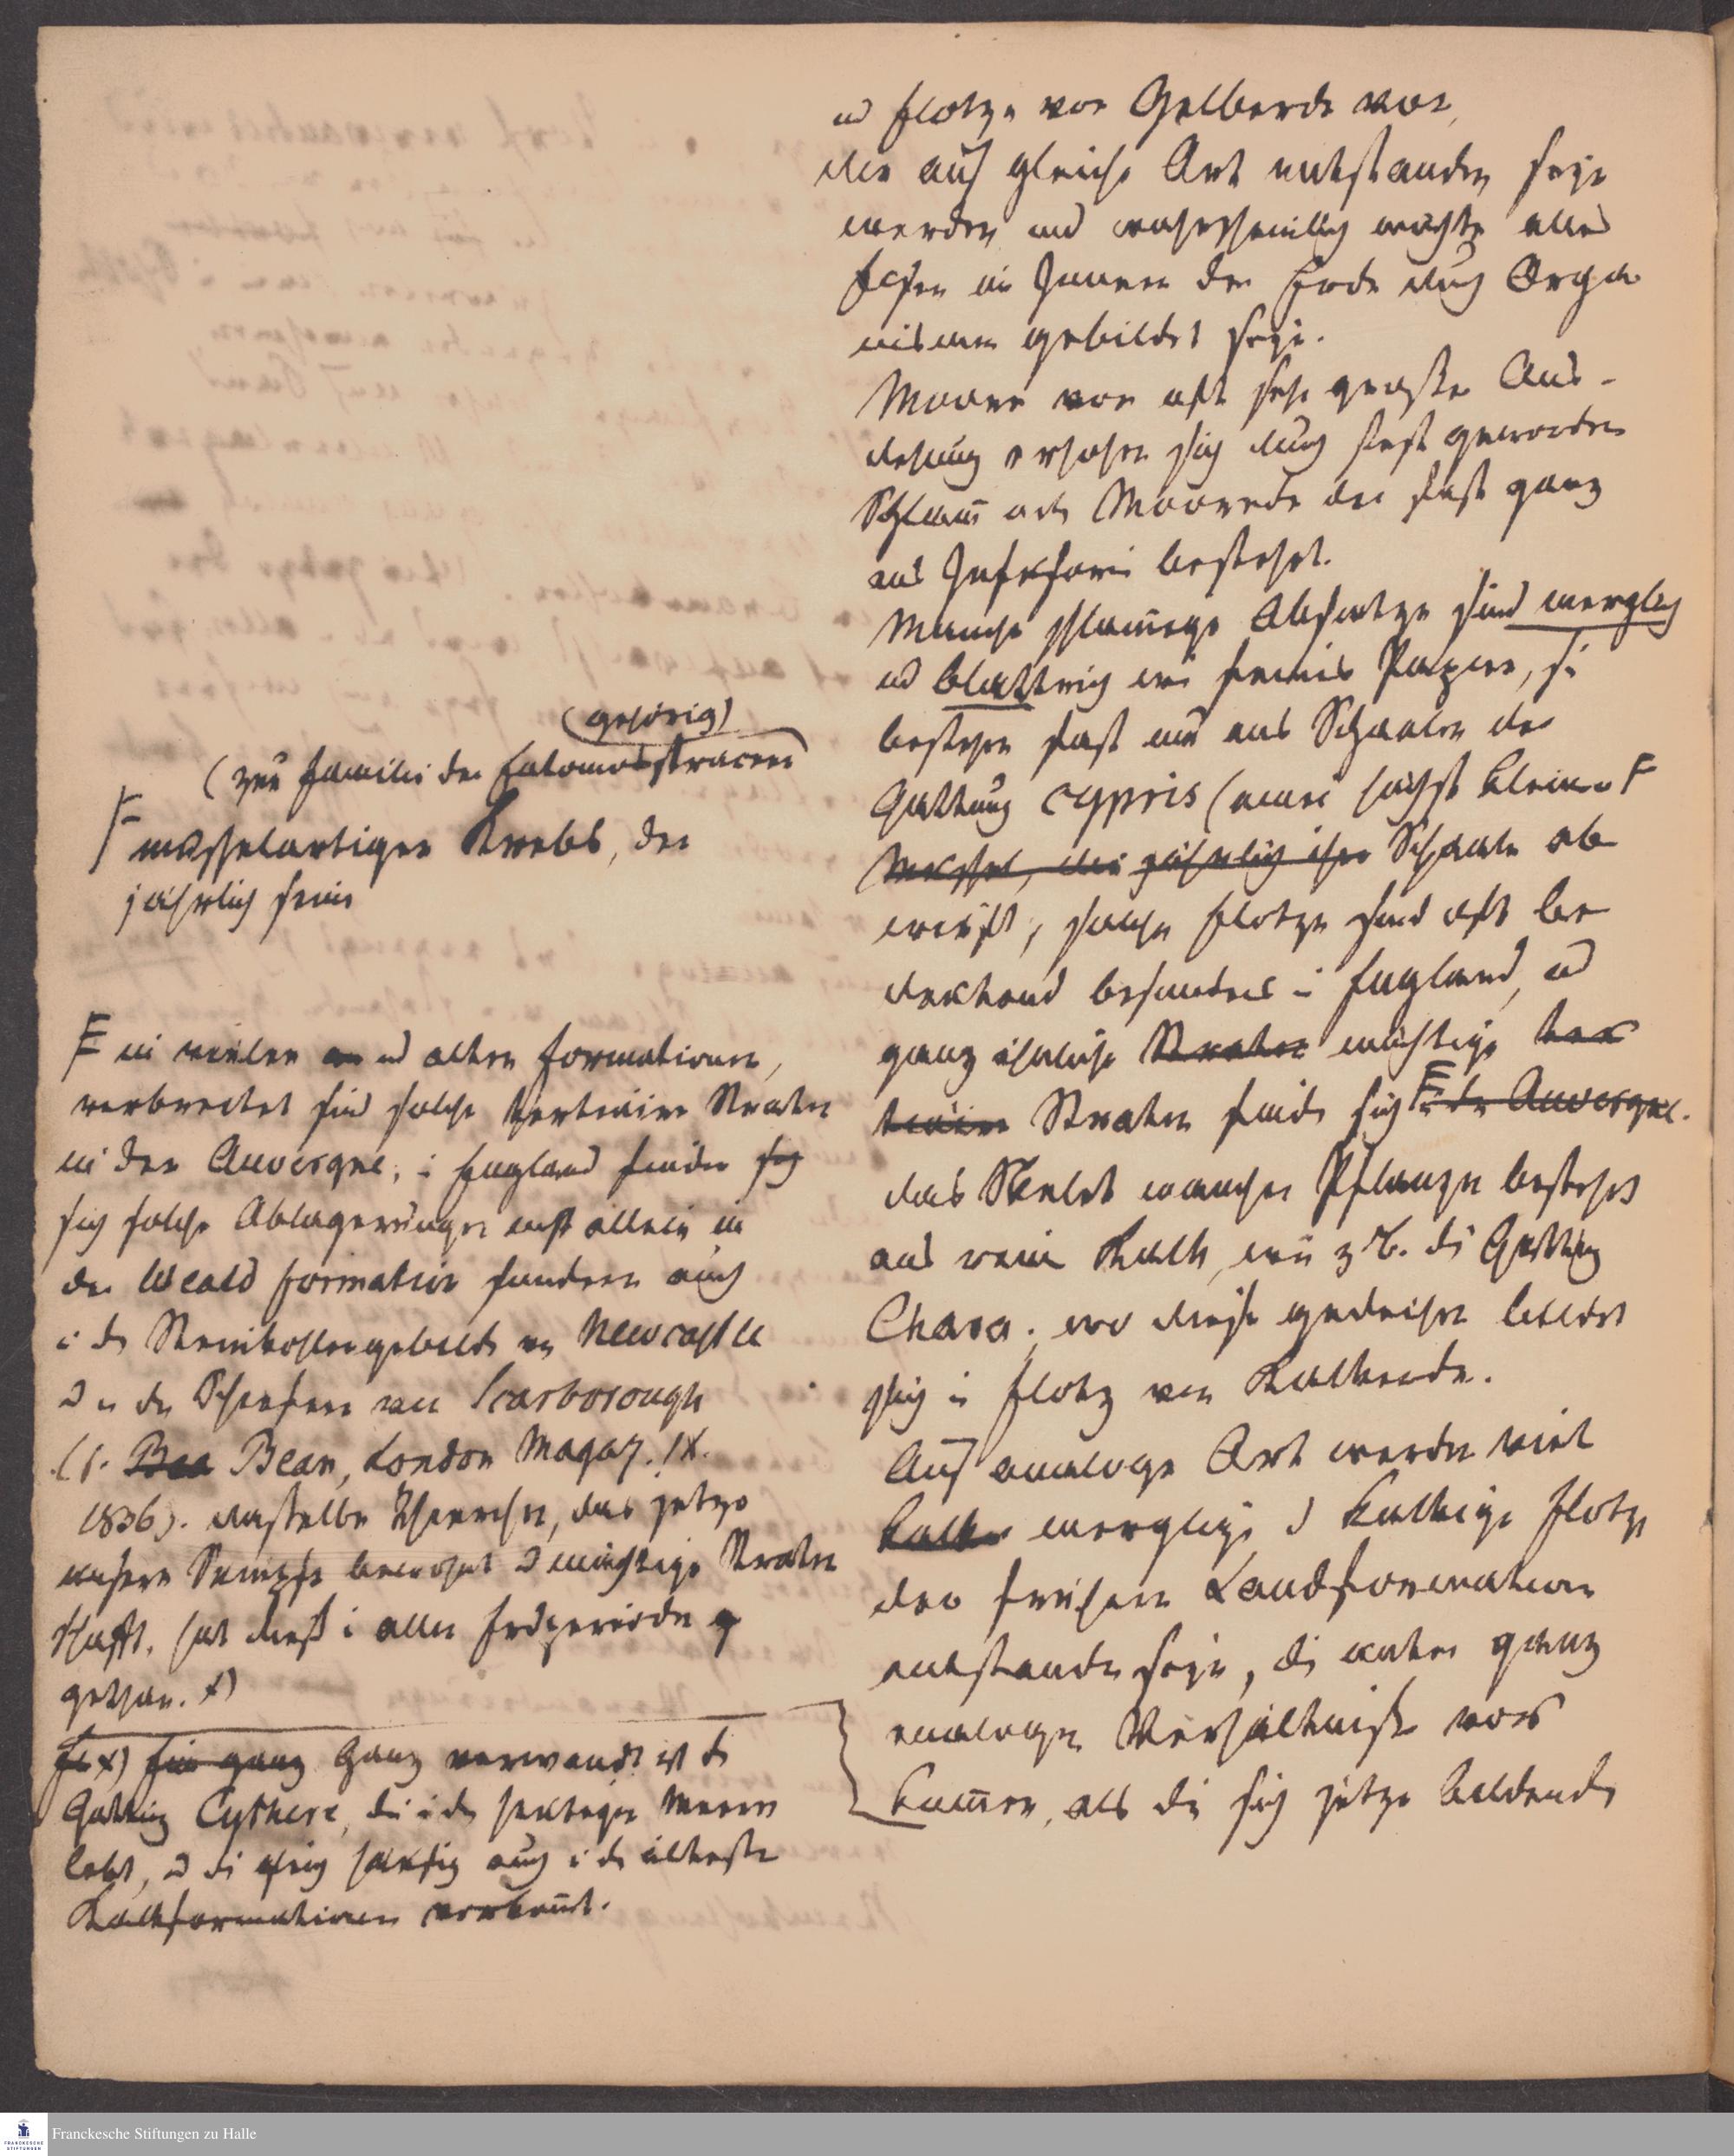 ud Flötze von Gelberde vor,
die auf gleiche Art entstanden seyn
werden und wahrscheinlich möchte alles
Eisen im Innern der Erde durch Orga
nismen gebildet seyn.
Moore von oft sehr großer Aus-
dehnung erhöhen sich durch fest geworden
Schlam̅ oder Moorerde die fast ganz
aus Infusorien besteht.
Manche schlam̅ige Absaetze sind merglig
ud blaettrig wie feines Papier, sie
bestehen fast nur aus Schaalen der
Gattung Cypris (einer höchst kleinen F
Muschel, die jährlich ihre Schaale ab
wirft; solche Flötze sind oft be
deutend besonders in England, ud
ganz ähnliche Straten mächtige ter
tiäire Straten finden sich F in der Auvergne.
Das Skelet mancher Pflanzen besteht
aus rein Kalk, wie z. B. die Gattung
Chara; wo diese gedeihen bildet
sich ein Flötz von Kalkerde.
Auf analoge Art werden viele
kalk mergliche u kalkige Flötze
der frühern Landformation
entstanden seyn, die unter ganz
analogen Verhältnissen vor
kom̅en, als die sich jetzt bildenden
(gehörig)
(zur Familie der Entomostraceen
F muschelartigen Krebs, der
jährlich seine
F in vielen ud alten Formationen,
verbreitet sind solche tertiaire Straten
in der Auvergne; in England finden sich
sich solche Ablagerungen nicht allein in
der Weald formation sondern auch
in der Steinkohlengebilde von Newcastle
u in den Schiefern von Scarborough
(s. Bea Bean, London Magaz. IX.
1836). dasselbe Thierchen, das jetzt
unsere Sümpfe bewohnt u mächtige Straten
schafft, hat dieß in allen Erdperioden g
gethan. x)
x) Ein ganz Ganz verwandt ist die
Gattung Cythere, die in den heutigen Meeren
lebt, u die häufig auch in den ältesten
Kalkformationen vorkom̅t.
Franckesche Stiftungen zu Halle